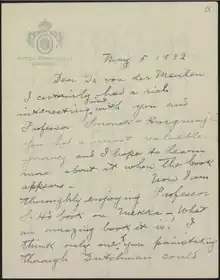 May 5 1932
Dear Dr van der Meulen
I certainly had a rich
interesting time with you and
Professor Snouck Hurgronje
You had a most valuable
journey and I hope to learn
more about it when the book
appears. Now I am
thoroughly enjoying Professor
S. H's book on Mekka. What
an amazing book it is. I
think only one painstaking
through Dutchman could